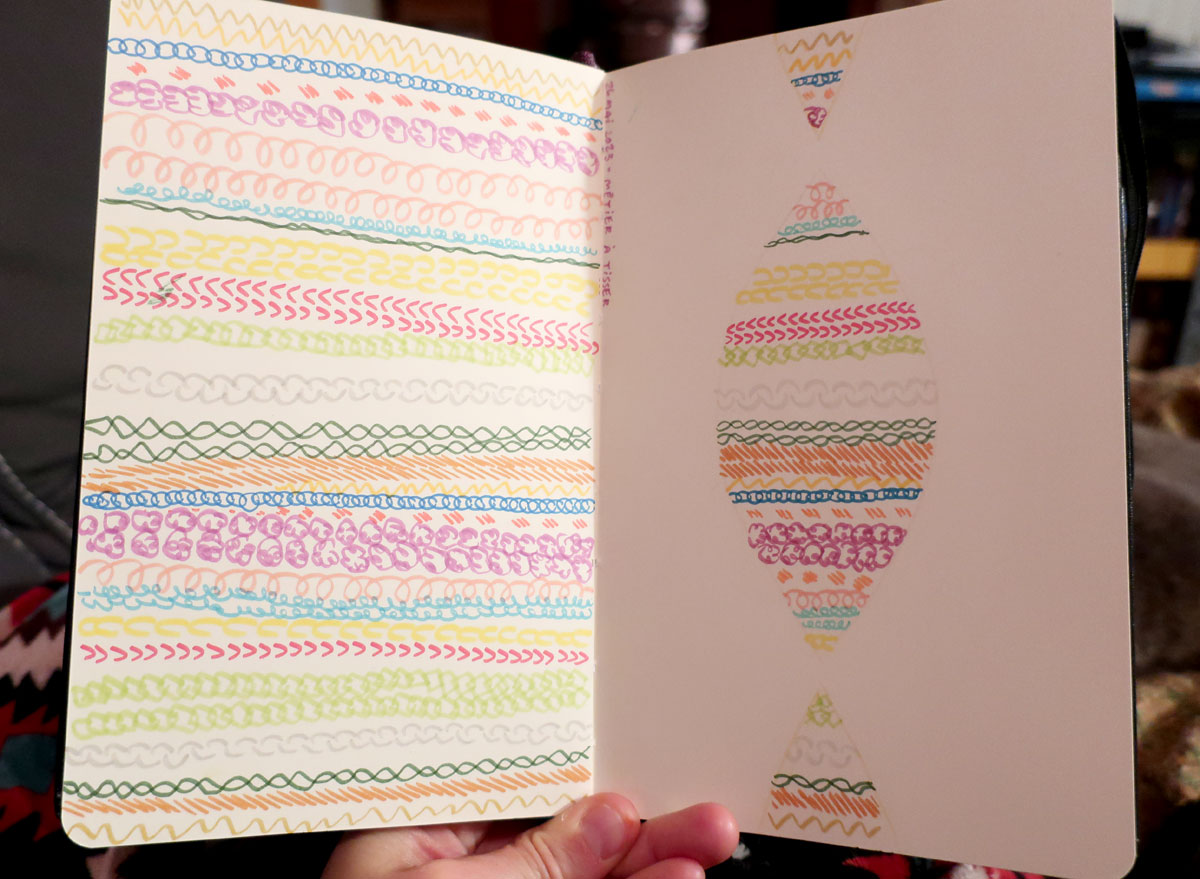 26 MAI 2023 - MÉTIER À TISSER